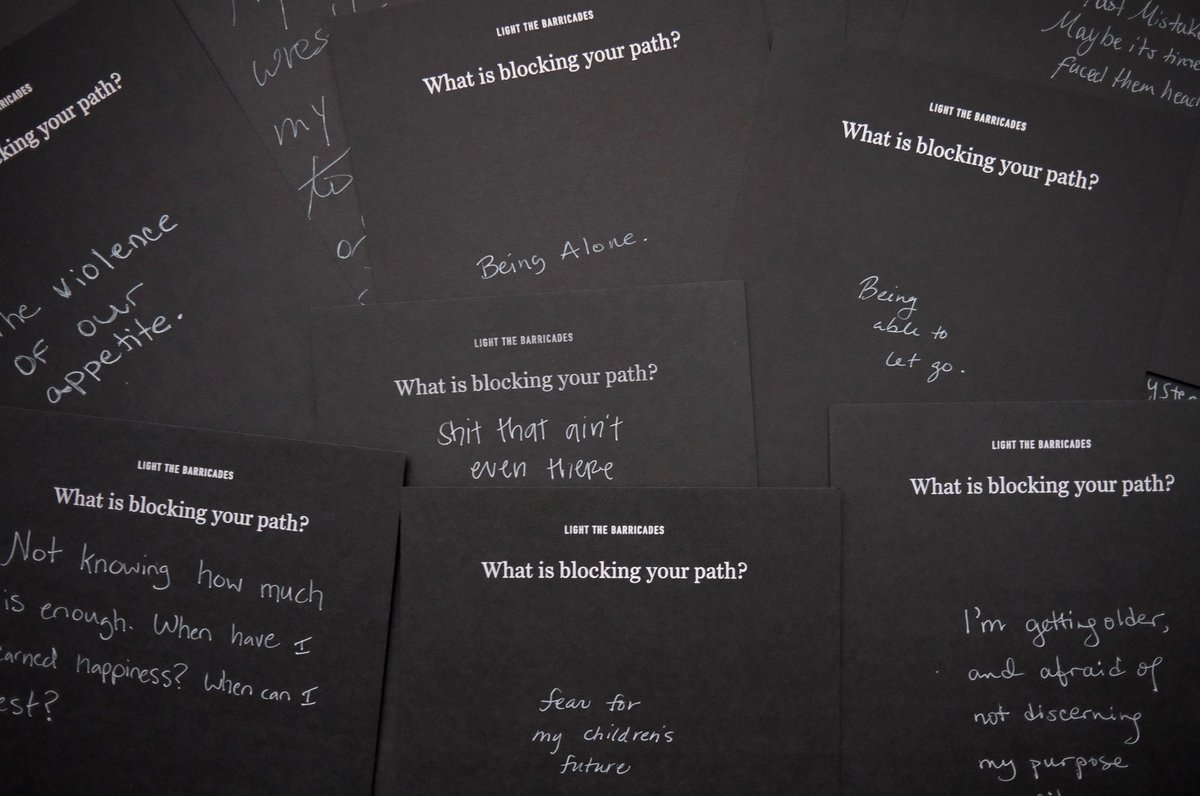 BARRICADES
king your path?
The violence
of our
appetite.
wres
my
to
or
LIGHT THE BARRICADES
What is blocking your path?
Being Alone.
Mistak
Maybe its time
faced them head
LIGHT THE BARRICADES
What is blocking your path?
Being
able to
let go.
yste
LIGHT THE BARRICADES
What is blocking your path?
Shit that ain't
even there
LIGHT THE BARRICADES
What is blocking your path?
Not knowing how much
is enough. When have I
earned happiness? When can I
est?
LIGHT THE BARRICADES
What is blocking your path?
fear for
my children's
future
LIGHT THE BARRICADES
What is blocking your path?
I'm getting older,
and afraid of
not discerning
my purpose